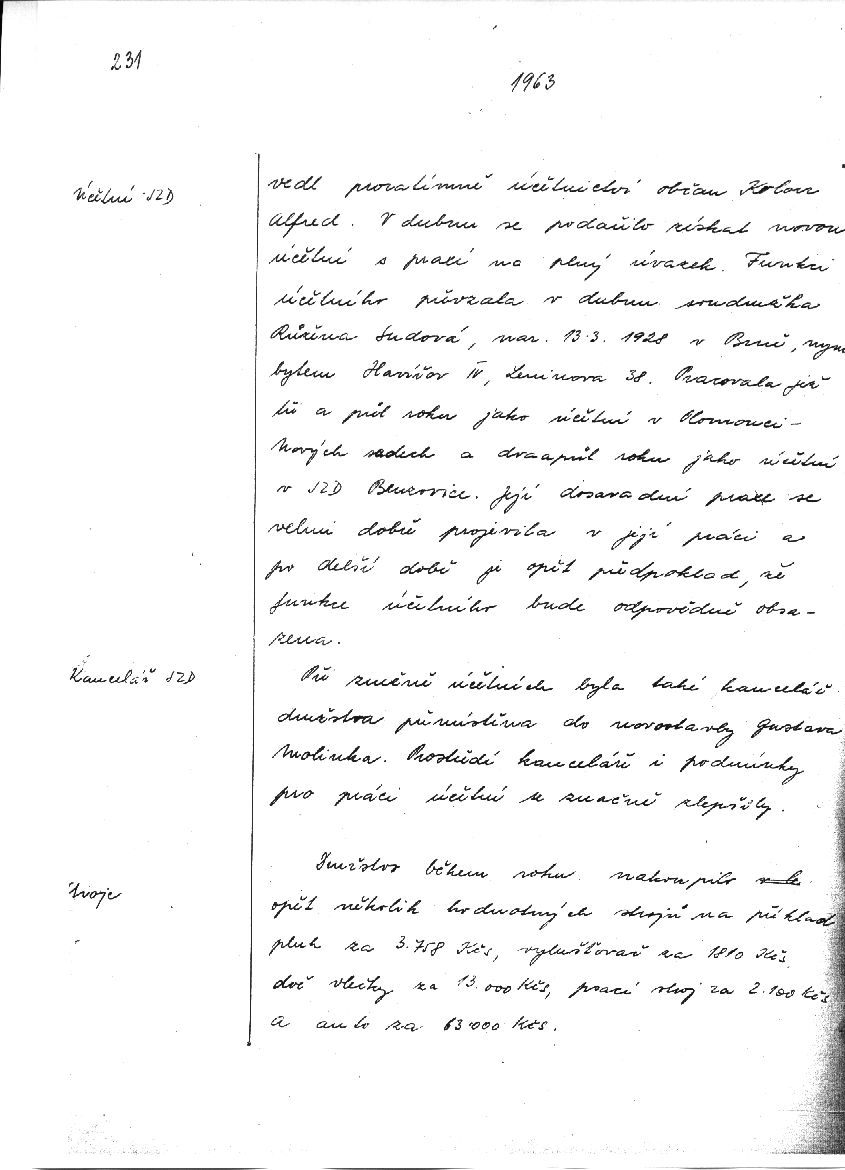 231
1963
Účetní JZD
vedl prozatímně účetnictví občan
Alfred. V dubnu se podařilo získat novou
účetní s prací na plný úvazek. Funkci
účetního převzala v dubnu soudružka
Růžena Sudová, nar. 13.3. 1928 v Brně, nyní
bytem Havířov IV, Leninova 38. Pracovala již
tři a půl roku jako účetní v Olomouci-
Nových sadech a dvaapůl roku jako účetní
v JZD Bruzovice. Její dosavadní praxe se
velmi dobře projevila v její práci a
po delší době je opět předpoklad, že
funkce účetního bude odpovědně obsa-
zena.
Kancelář JZD
Při změně účetních byla také kancelář
družstva přemístěna do novostavby Gustava
Molinka. Prostředí kanceláře i podmínky
pro práci účetní se značně zlepšily.
Stroje
Družstvo během roku nakoupilo
opět několik hodnotných strojů na příklad
pluh za 3.758 Kčs, vylušťovač za 1810 Kčs
dvě vlečky za 13.000 Kčs, prací stroj za 2.100 Kčs
a auto za 63.000 Kčs.